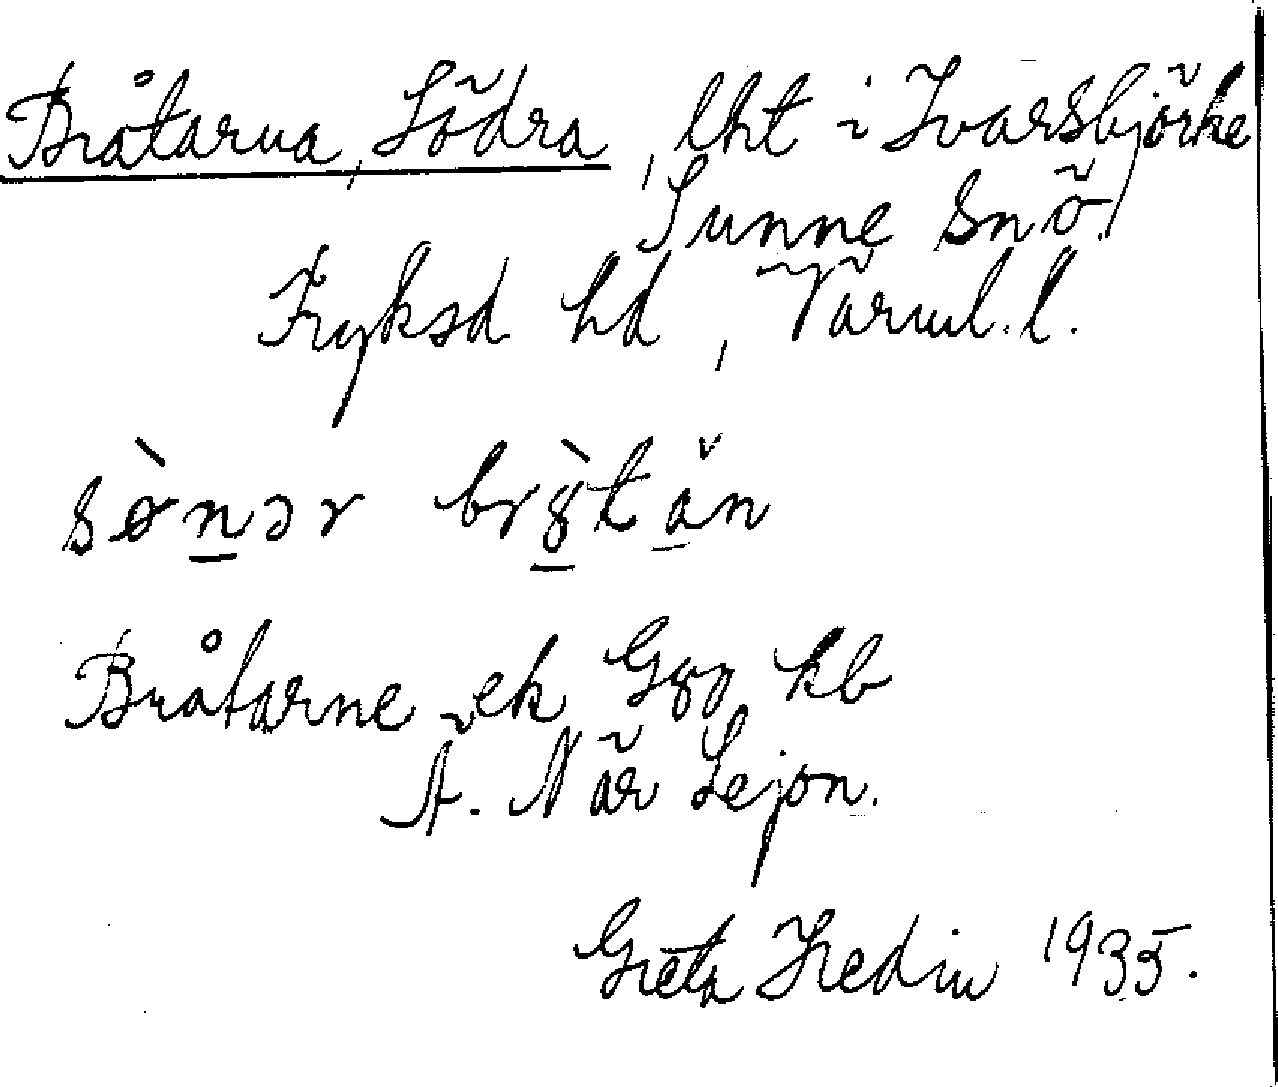 Bråtarna, Södra, lht i Ivarsbjörke
Sunne snö.
Fryksd hd, Värml. l.
sø̀nər brɣ̀tăn
Bråtarne ek Ggg kb
A. När Lejon.
Greta Hedin 1935.